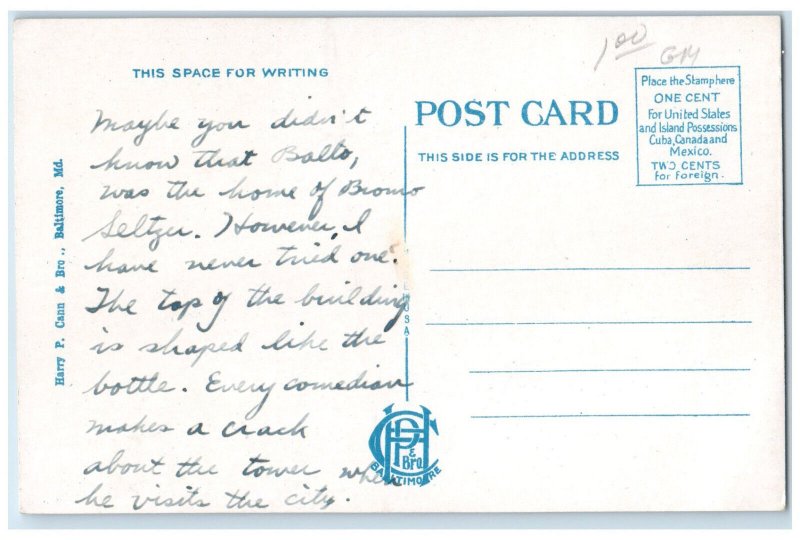 1.00
GM
THIS SPACE FOR WRITING
Maybe you didn't
know that Balto,
was the home of Bromo
Seltzer. However, I
have never tried one.
The top of the building
is shaped like the
bottle. Every comedian
makes a crack
about the tower when
he visits the city.
Harry P. Cann & Bro., Baltimore, Md.
POST CARD
THIS SIDE IS FOR THE ADDRESS
Place the Stamp here
ONE CENT
For United States
and Island Possessions
Cuba, Canada and
Mexico.
TWO CENTS
for foreign.
USA
HPC
& Bro
BALTIMORE